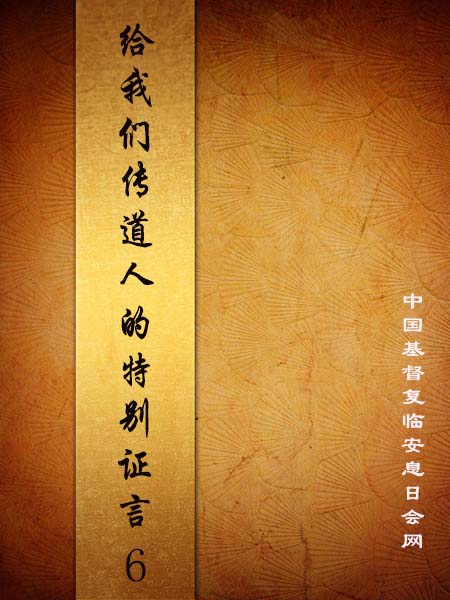 给我们传道人的特别证言6
中国基督复临安息日会网